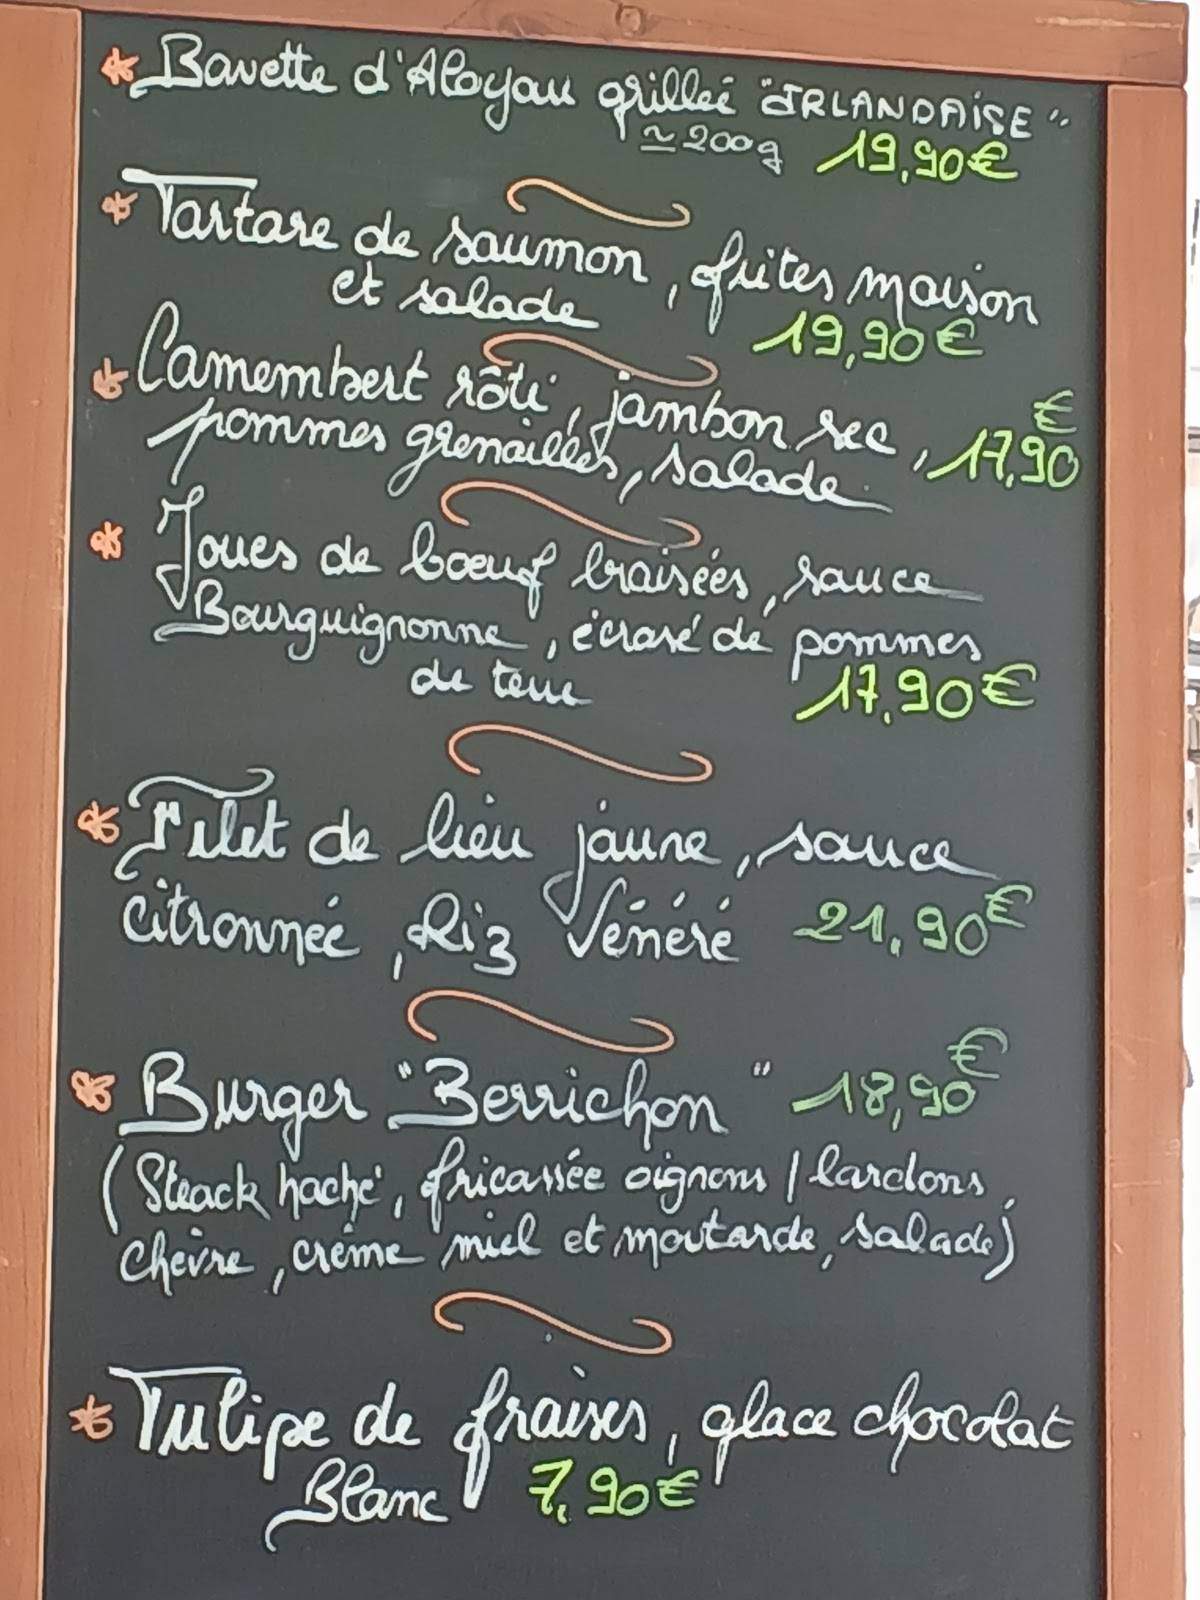 Bavette d'Aloyau grillée "IRLANDAISE"
≃200g 19,90€
Tartare de saumon, frites maison
et salade 19,90€
Camembert rôti, jambon sec, 17,90€
pommes grenailles, salade.
Joues de bœuf braisées, sauce
Bourguignonne, écrasé de pommes
de terre 17,90€
Filet de lieu jaune, sauce
citronnée, Riz Vénéré 21,90€
Burger "Berrichon" 18,90€
(Steack haché, fricassée oignons / lardons,
chèvre, crème miel et moutarde, salade)
Tulipe de fraises, glace chocolat
Blanc 7,90€